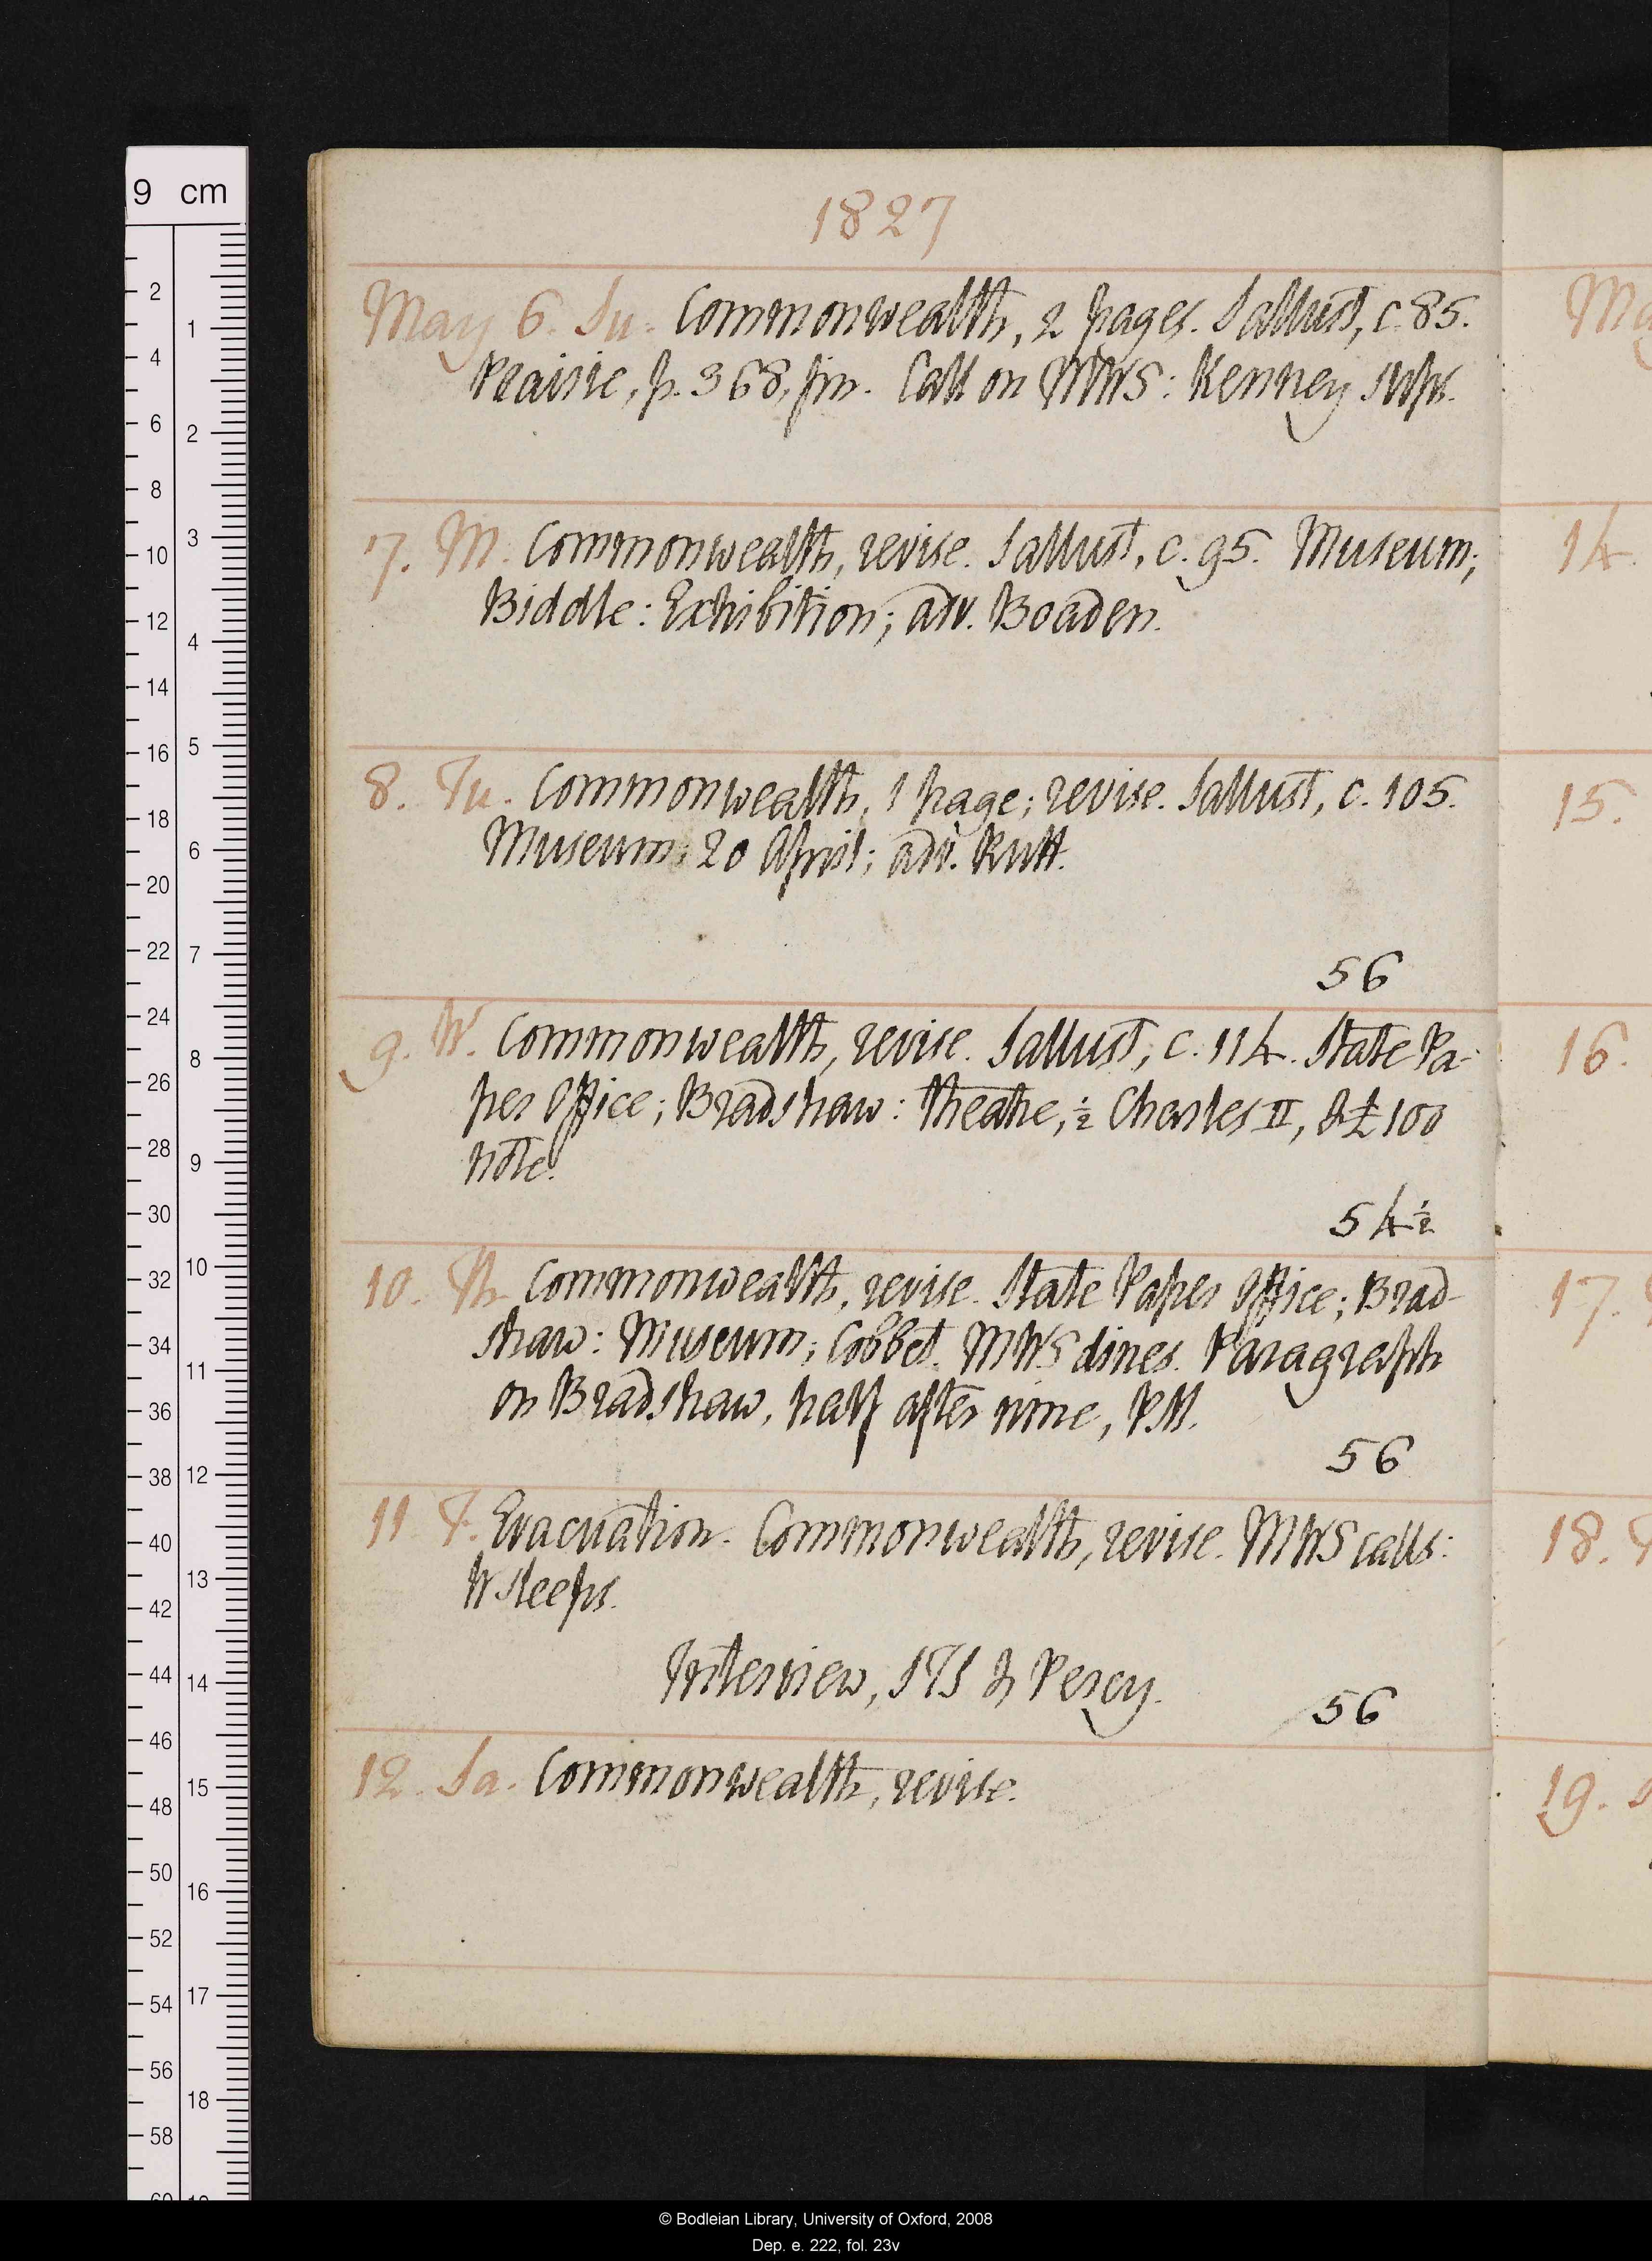 1827
May 6. Su. Commonwealth, 2 pages. Sallust, c. 85.
Prairie, p. 368, fin. Call on MWS: Kenney sups.
7. M. Commonwealth, revise. Sallust, c. 95. Museum;
Biddle: Exhibition; adv. Boaden.
8. Tu. Commonwealth, 1 page; revise. Sallust, c. 105.
Museum; 20 April; adv. Rutt.
56
9. W. Commonwealth, revise. Sallust, c. 114. State Pa-
per Office; Bradshaw: theatre, ½ Charles II, & £100
note.
54½
10. Th. Commonwealth, revise. State Paper Office; Brad-
shaw: Museum; Cobbet. MWS dines. Paragraph
on Bradshaw, half after nine, PM.
56
11. F. Evacuation. Commonwealth, revise. MWS calls:
W sleeps.
Interview, STS & Percy.
56
12. Sa. Commonwealth, revise.
Ma
14.
15.
16.
17.
18.
19.
9 cm
2
4
6
8
10
12
14
16
18
20
22
24
26
28
30
32
34
36
38
40
42
44
46
48
50
52
54
56
58
1
2
3
4
5
6
7
8
9
10
11
12
13
14
15
16
17
18
© Bodleian Library, University of Oxford, 2008
Dep. e. 222, fol. 23v